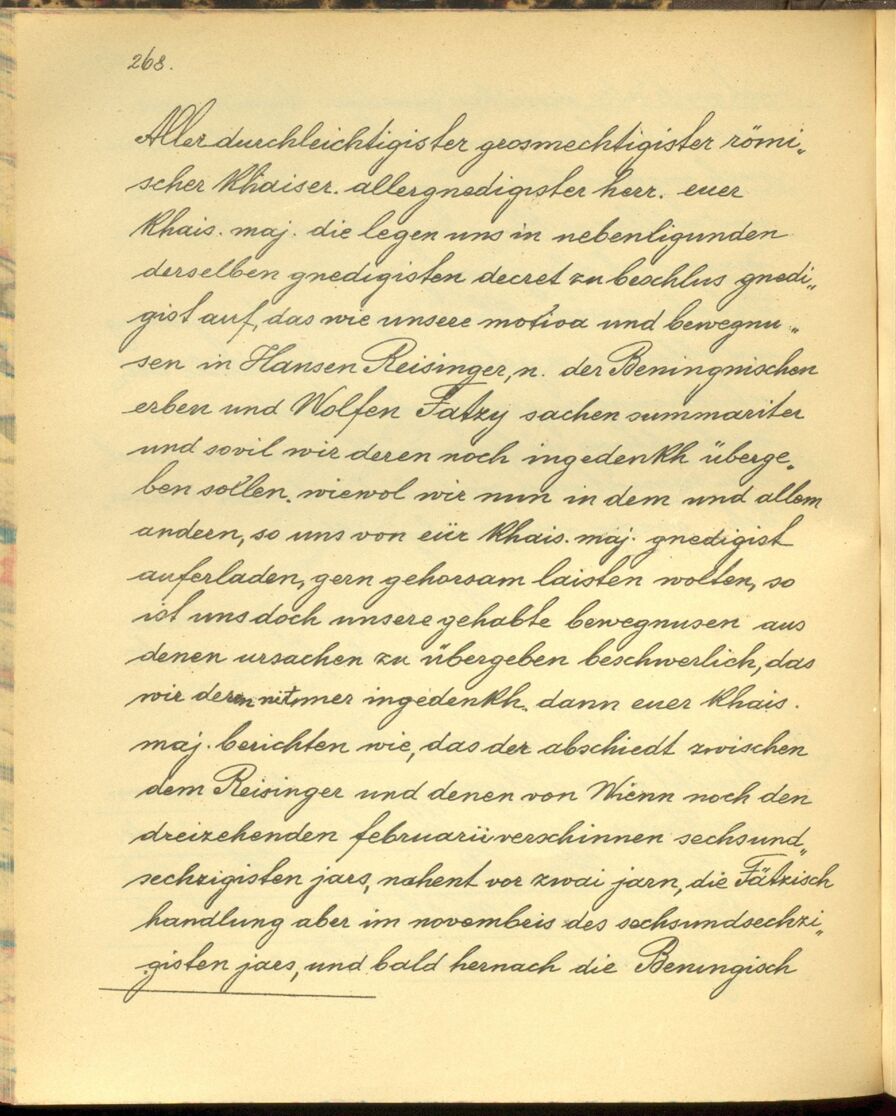 268.
Allerdurchleichtigister grosmechtigister römi„
scher khaiser. allergnedigister herr. euer
khais. maj. die legen uns in nebenligunden
derselben gnedigisten decret zu beschlus gnedi„
gist auf, das wie unsere motiva und bewegnu„
sen in Hansen Reisinger, n. der Beningnischen
erben und Wolfen Fatzy sachen summariter
und sovil wir deren noch ingedenkh überge„
ben sollen. wiewol wir nun in dem und allem
andern, so uns von eür khais. maj. gnedigist
auferladen, gern gehorsam laisten wolten, so
ist uns doch unsere gehabte bewegnusen aus
denen ursachen zu übergeben beschwerlich, das
wir deren nit mer ingedenkh. dann euer khais.
maj. berichten wie, das der abschiedt zwischen
dem Reisinger und denen von Wienn noch den
dreizehenden februarii verschinnen sechsund„
sechzigisten jars, nahent vor zwai jarn, die Fätzisch
handlung aber im novembris des sechsundsechzi„
gisten jars, und bald hernach die Beningisch